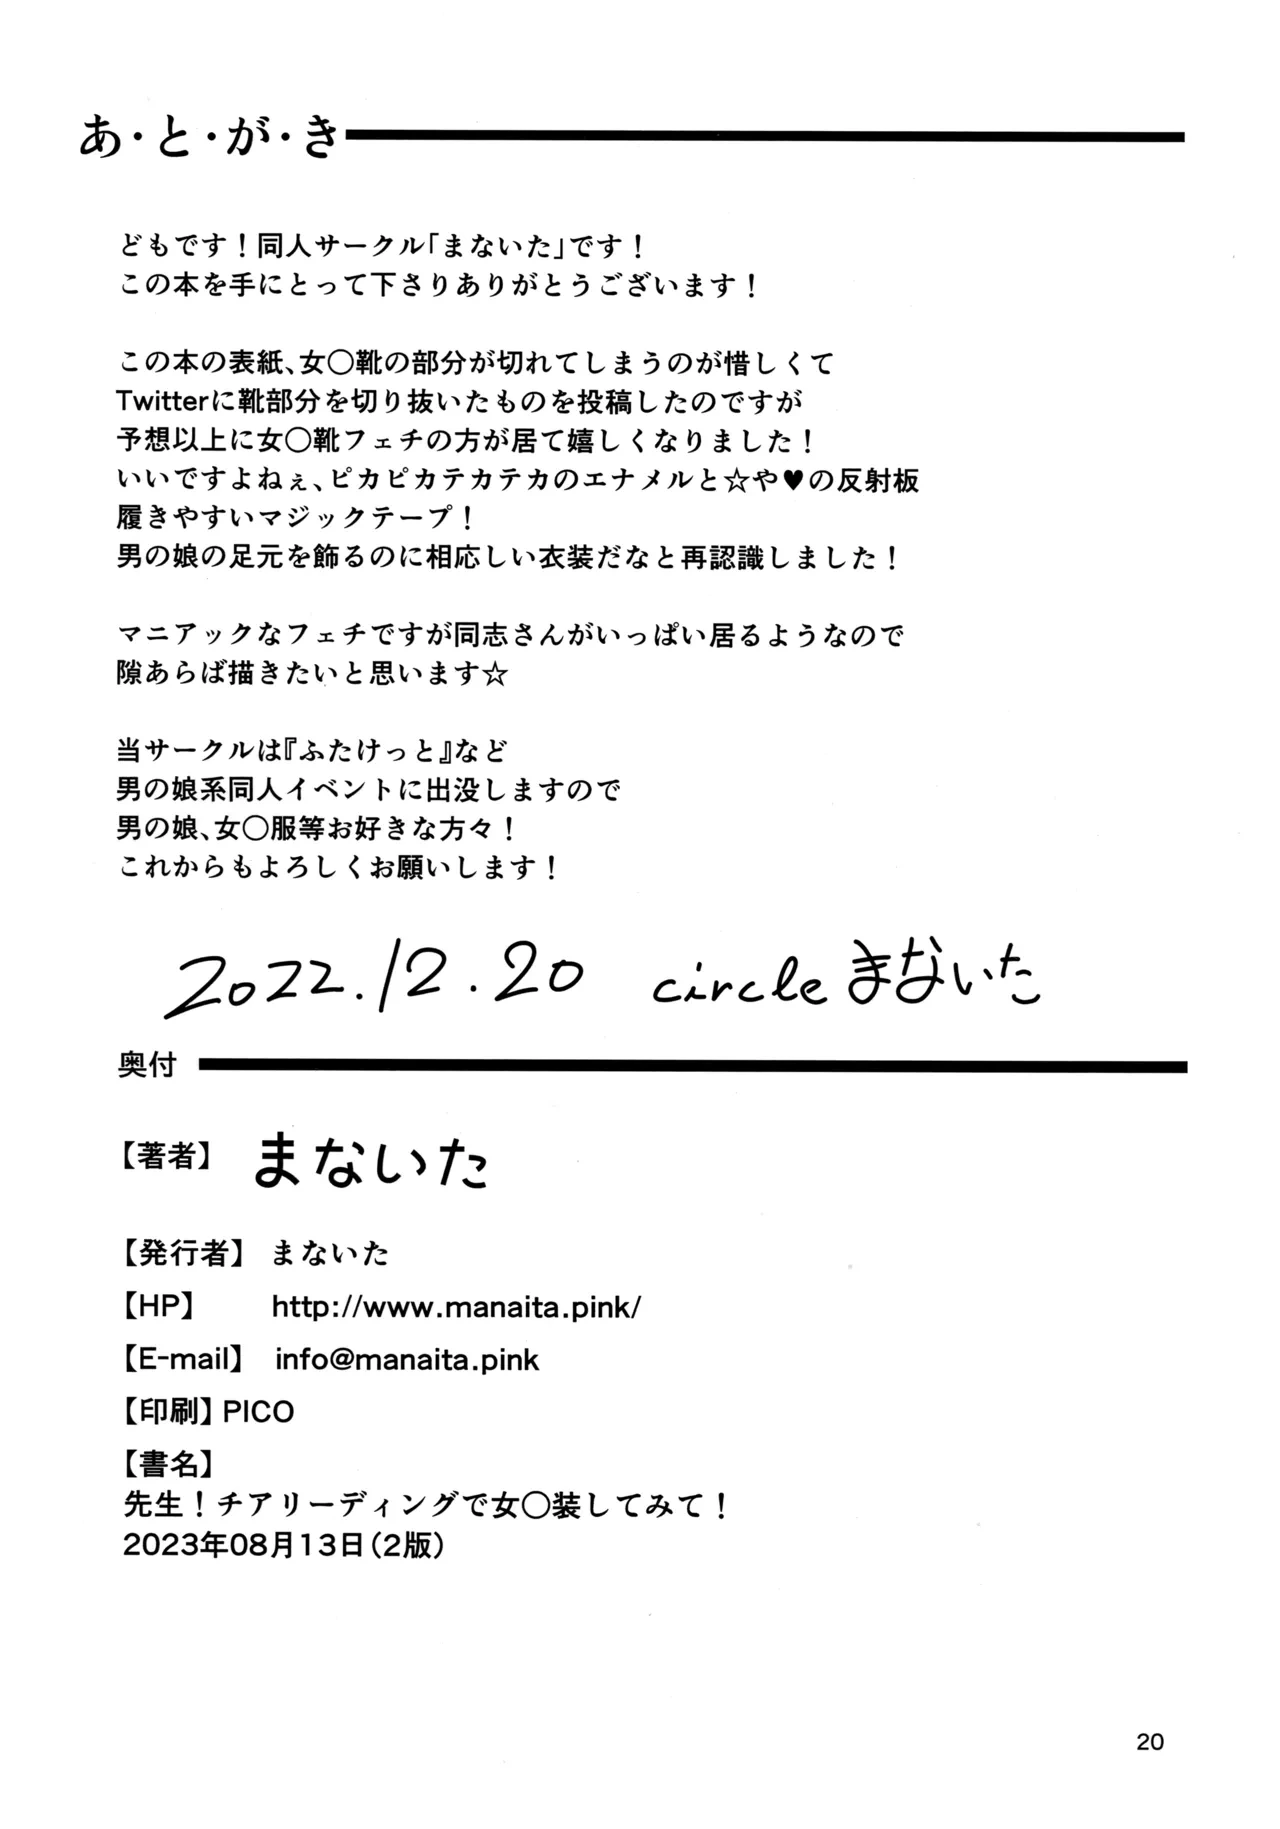 あ・と・が・き
どもです！同人サークル「まないた」です！
この本を手にとって下さりありがとうございます！
この本の表紙、女〇靴の部分が切れてしまうのが惜しくて
Twitterに靴部分を切り抜いたものを投稿したのですが
予想以上に女〇靴フェチの方が居て嬉しくなりました！
いいですよねぇ、ピカピカテカテカのエナメルと☆や♥の反射板
履きやすいマジックテープ！
男の娘の足元を飾るのに相応しい衣装だなと再認識しました！
マニアックなフェチですが同志さんがいっぱい居るようなので
隙あらば描きたいと思います☆
当サークルは『ふたけっと』など
男の娘系同人イベントに出没しますので
男の娘、女〇服等お好きな方々！
これからもよろしくお願いします！
2022.12.20 circle まないた
奥付
【著者】 まないた
【発行者】 まないた
【HP】 http://www.manaita.pink/
【E-mail】 info@manaita.pink
【印刷】 PICO
【書名】
先生！チアリーディングで女〇装してみて！
2023年08月13日（2版）
20